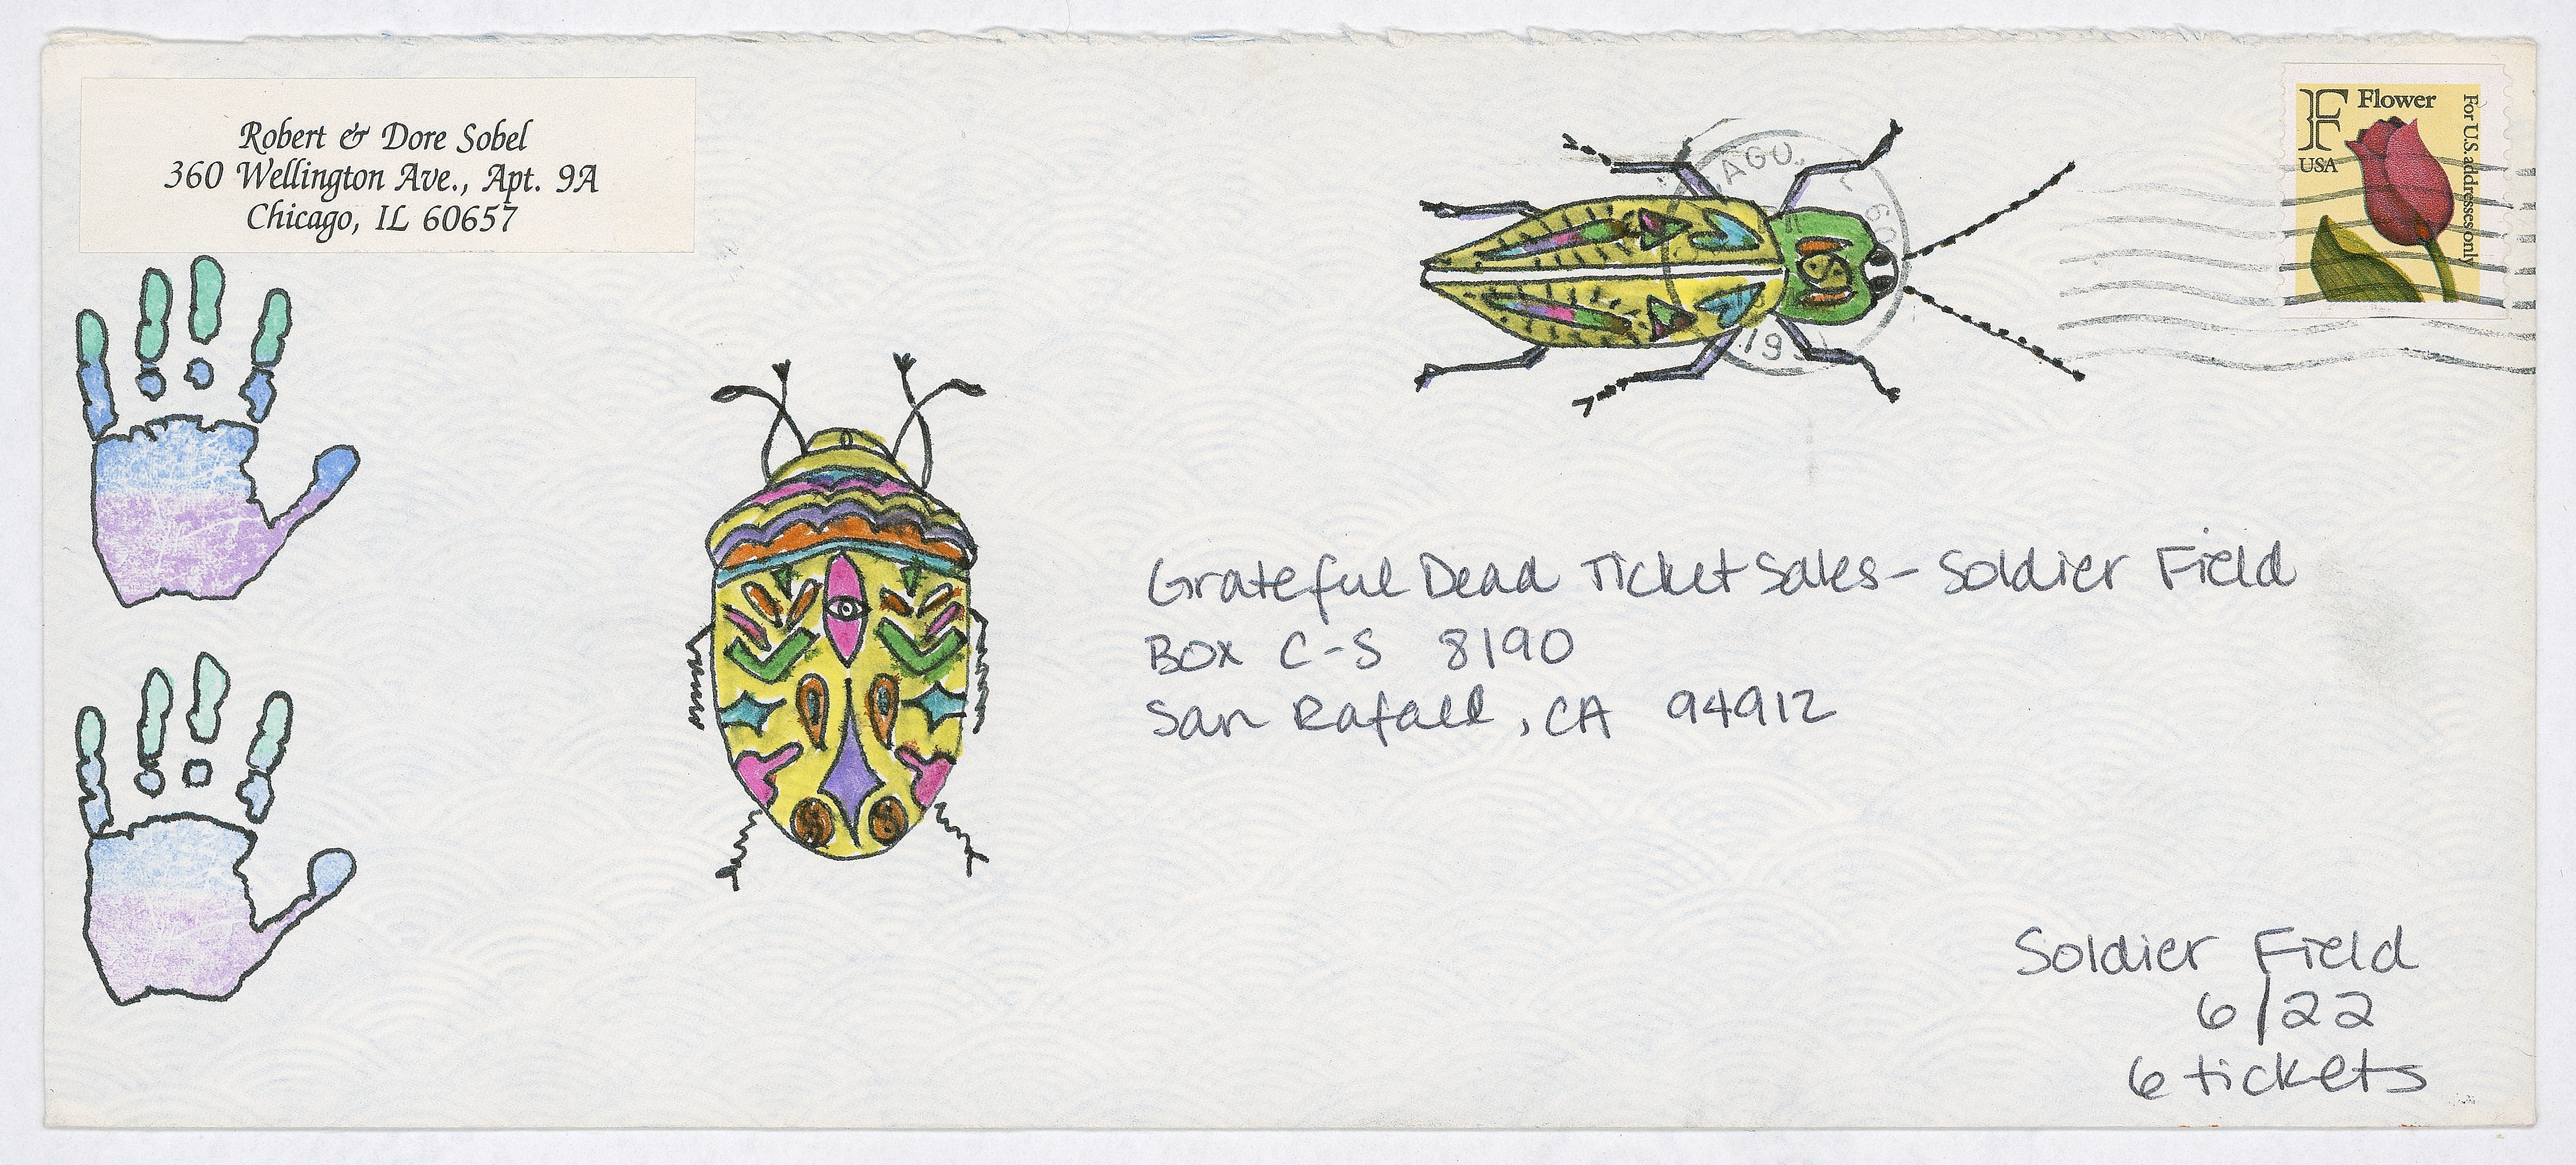 Robert & Dore Sobel
360 Wellington Ave., Apt. 9A
Chicago, IL 60657
F Flower
USA
For U.S. addresses only
Grateful Dead Ticket Sales - Soldier Field
Box C-S 8190
San Rafael, CA 94912
Soldier Field
6/22
6 tickets